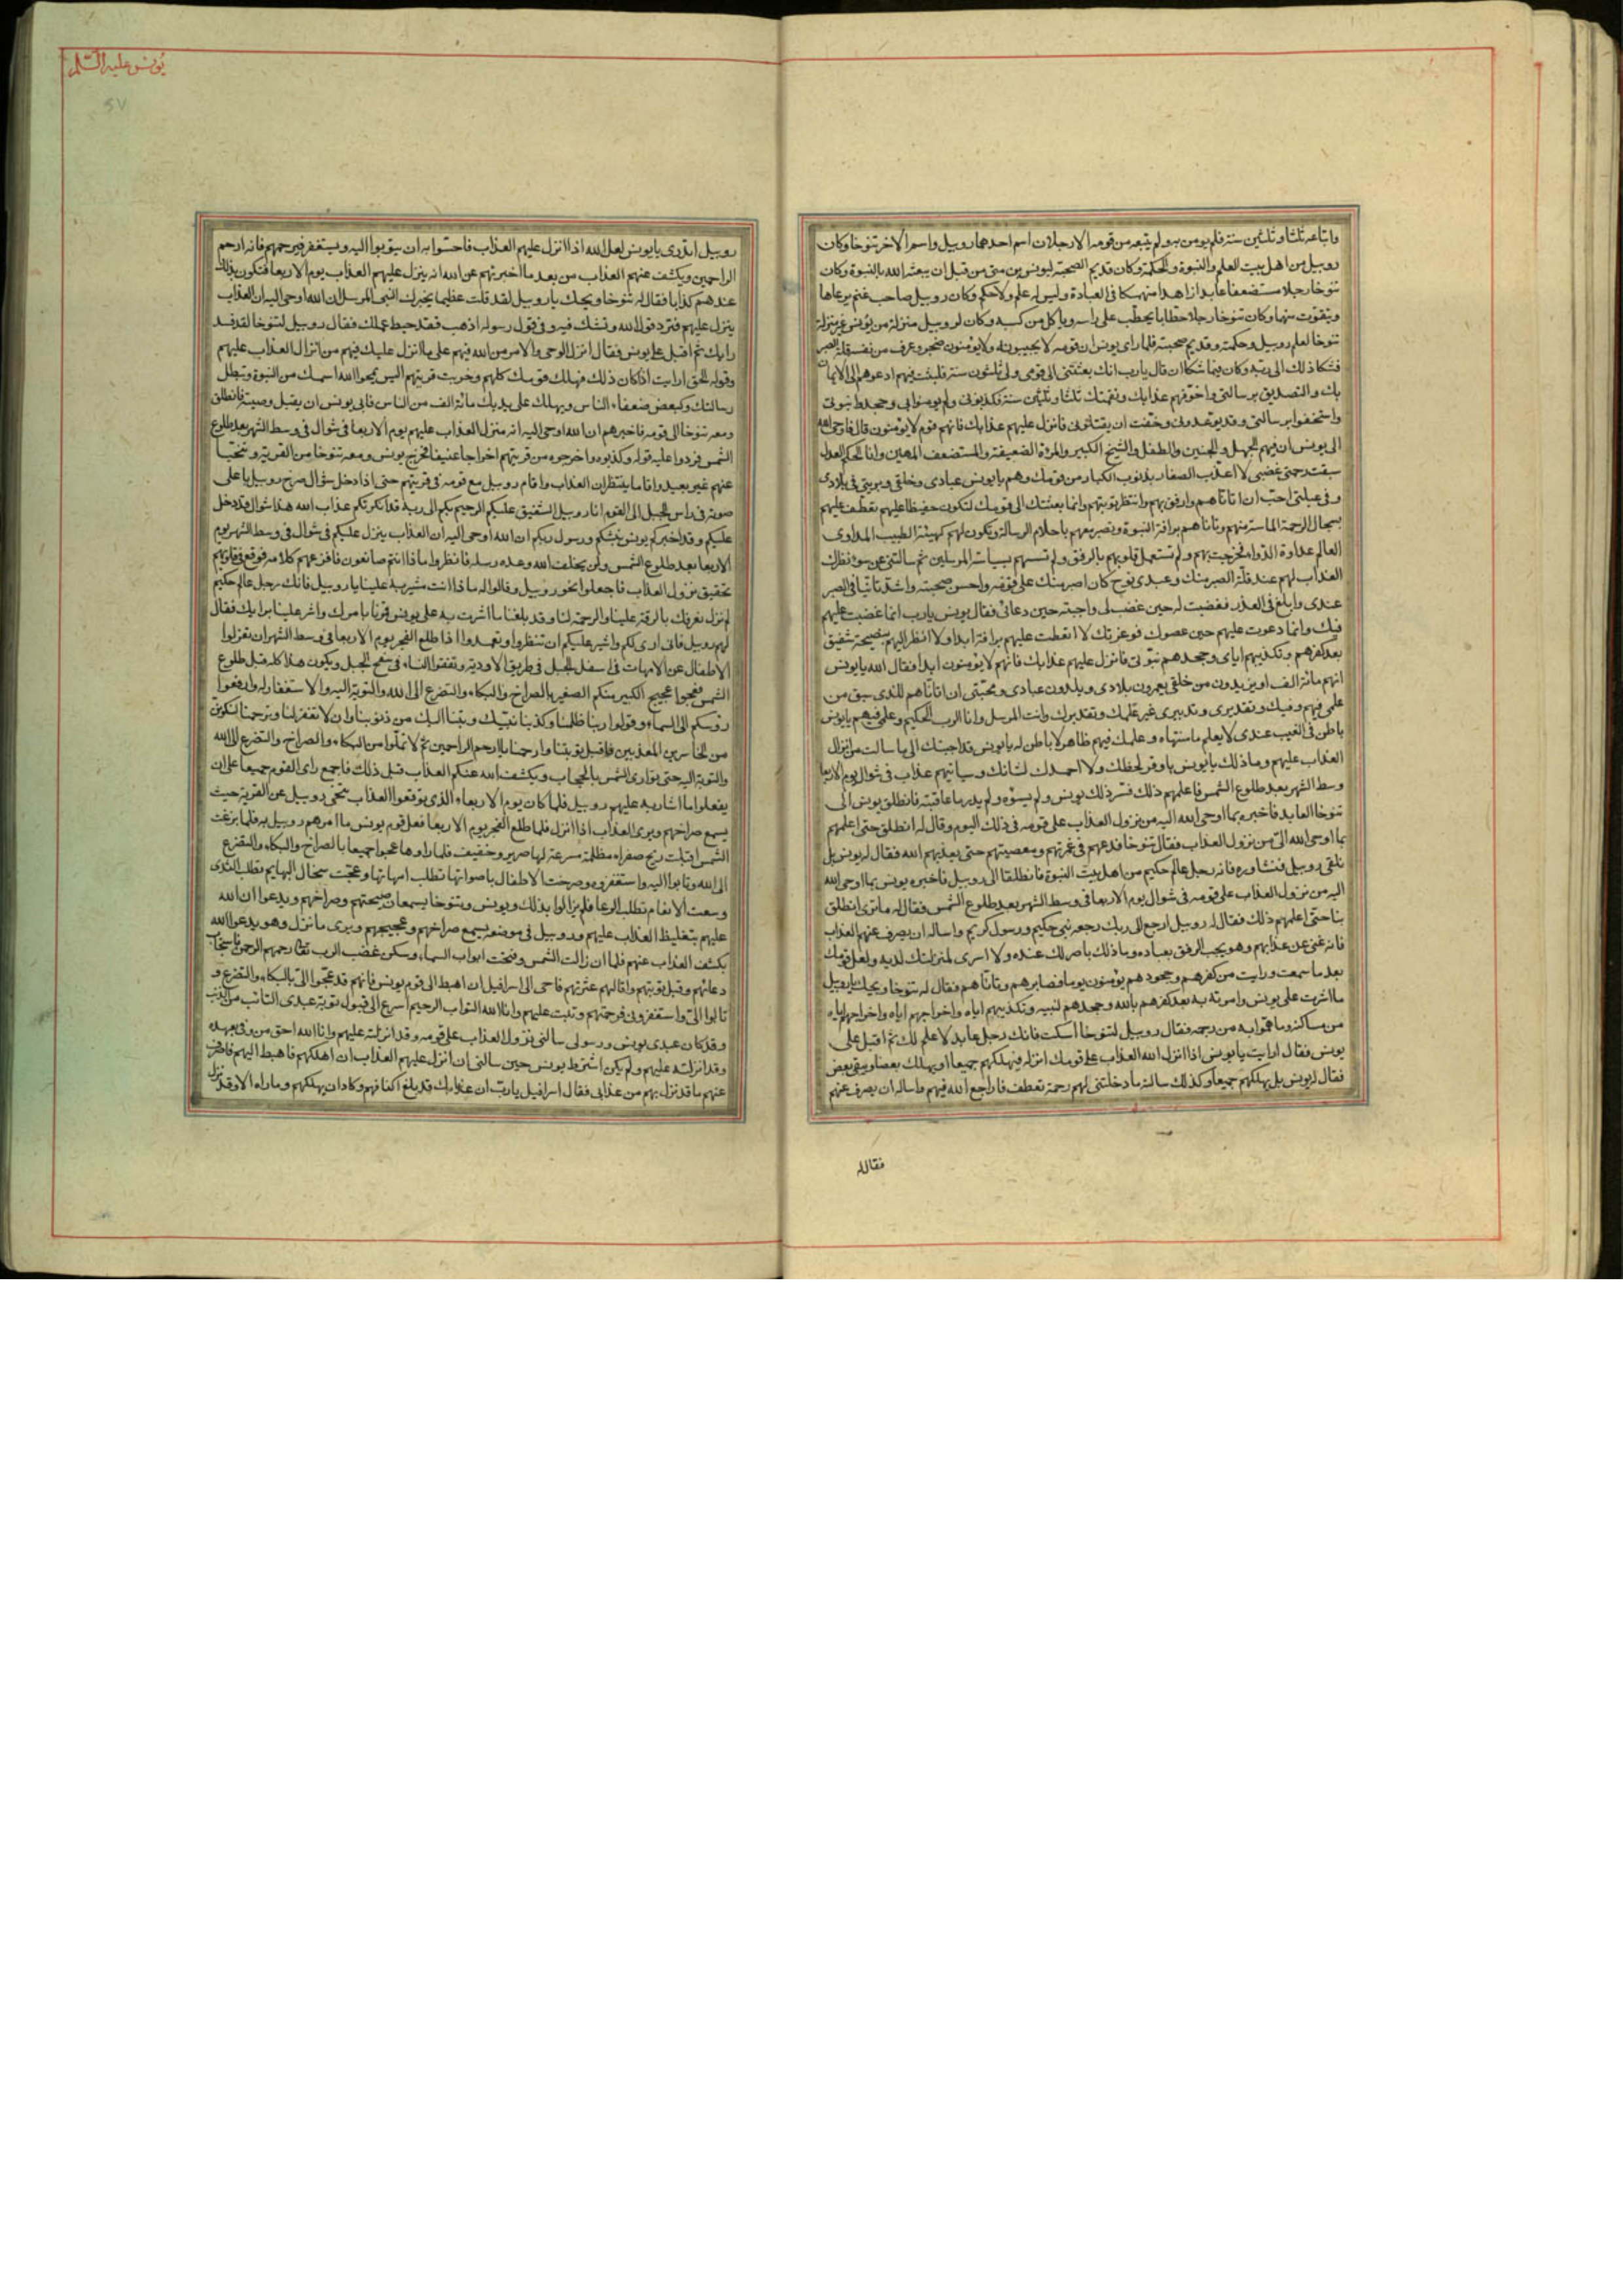 واتباعه ثلثا وثلثين سنة فلم يومن به ولم يتبعه من قومه الا رجلان اسم احدهما روبيل واسم الاخر تنوخا وكان
روبيل من اهل بيت العلم والنبوة والحكمة وكان قديم الصحبة ليونس بن متى من قبل ان يبعثه الله بالنبوة وكان
تنوخا رجلا مستضعفا عابدا زاهدا منهمكا فى العبادة وليس له علم ولا حكم وكان روبيل صاحب غنم يرعاها
ويتقوت منها وكان تنوخا رجلا حطابا يحطب على راسه وياكل من كسبه وكان لروبيل منزلة من يونس غير منزلة
تنوخا لعلم روبيل وحكمته وقديم صحبته فلما راى يونس ان قومه لا يجيبونه ولا يؤمنون ضجر وعرف من نفسه قلة الصبر
فشكا ذلك الى ربه وكان فيما شكا ان قال يا رب انك بعثتنى الى قومى ولى ثلثون سنة فلبثت فيهم ادعوهم الى الايمان
بك والتصديق برسالتى واخوفهم عذابك ونقمتك ثلثا وثلثين سنة فكذبونى ولم يومنوا بى وجحدوا نبوتى
واستخفوا برسالتى وقد توعدونى وخفت ان يقتلونى فانزل عليهم عذابك فانهم قوم لا يؤمنون قال فاوحى الله
الى يونس ان فيهم الحمل والجنين والطفل والشيخ الكبير والمرءة الضعيفة والمستضعف المهين وانا الحكم العدل
سبقت رحمتى غضبى لا اعذب الصغار بذنوب الكبار من قومك وهم يا يونس عبادى وخلقى وبريتى فى بلادى
وفى عيلتى احب ان اتاناهم وارفق بهم وانتظر توبتهم وانما بعثتك الى قومك لتكون حفيظا عليهم تعطف عليهم
بسجال الرحمة الماسة منهم وتاناهم برافة النبوة وتصبر معهم باحلام الرسالة وتكون لهم كهيئة الطبيب المداوى
العالم بمداوة الدواء فخرجت بهم ولم تستعمل قلوبهم بالرفق ولم تسسهم بسياسة المرسلين ثم سالتنى عن سوء نظرك
العذاب لهم عند قلة الصبر منك وعبدى نوح كان اصبر منك على قومه واحسن صحبة واشد تانيا فى الصبر
عندى وابلغ فى العذر فغضبت له حين غضب لى واجبته حين دعانى فقال يونس يا رب انما غضبت عليهم
فيك وانما دعوت عليهم حين عصوك فوعزتك لا اتعطف عليهم برافة ابدا ولا انظر اليهم بنصيحة شفيق
بعد كفرهم وتكذيبهم اياى وجحدهم نبوتى فانزل عليهم عذابك فانهم لا يؤمنون ابدا فقال الله يا يونس
انهم مائة الف او يزيدون من خلقى يعمرون بلادى ويلدون عبادى ومحبتى ان اتاناهم للذى سبق من
علمى فيهم وفيك وتقديرى وتدبيرى غير علمك وتقديرك وانت المرسل وانا الرب الحكيم وعلمى فيهم يا يونس
باطن فى الغيب عندى لا يعلم ما منتهاه وعلمك فيهم ظاهر لا باطن له يا يونس قد اجبتك الى ما سالت من انزال
العذاب عليهم وما ذلك يا يونس باوفر لحظك ولا احمد لك لشانك وسياتيهم عذاب فى شوال يوم الاربعا
وسط الشهر بعد طلوع الشمس فاعلمهم ذلك فسر ذلك يونس ولم يسؤه ولم يدر ما عاقبته فانطلق يونس الى
تنوخا العابد فاخبره بما اوحى الله اليه من نزول العذاب على قومه فى ذلك اليوم وقال له انطلق حتى اعلمهم
بما اوحى الله الى من نزول العذاب فقال تنوخا فدعهم فى غمرتهم ومعصيتهم حتى يعذبهم الله فقال له يونس بل
نلقى روبيل فنشاوره فانه رجل عالم حكيم من اهل بيت النبوة فانطلقا الى روبيل فاخبره يونس بما اوحى الله
اليه من نزول العذاب على قومه فى شوال يوم الاربعا فى وسط الشهر بعد طلوع الشمس فقال له ما ترى انطلق
بنا حتى اعلمهم ذلك فقال له روبيل ارجع الى ربك رجعة نبى حكيم ورسول كريم واساله ان يصرف عنهم العذاب
فانه غنى عن عذابهم وهو يحب الرفق بعباده وما ذلك باضر لك عنده ولا اسرى لمنزلتك لديه ولعل قومك
بعد ما سمعت ورايت من كفرهم وجحودهم يؤمنون يوما فصابرهم وتاناهم فقال له تنوخا ويحك يا روبيل
ما اشرت على يونس وامرته به بعد كفرهم بالله وجحدهم لنبيه وتكذيبهم اياه واخراجهم اياه
من مساكنه وما هموا به من رجمه فقال روبيل لتنوخا اسكت فانك رجل عابد لا علم لك ثم اقبل على
يونس فقال ارايت يا يونس اذا انزل الله العذاب على قومك انزله فيهلكهم جميعا او يهلك بعضا ويبقى بعض
فقال له يونس بل يهلكهم جميعا وكذلك سالته ما دخلتنى لهم رحمة تعطف فاراجع الله فيهم واساله ان يصرف عنهم
فقال له
يونس عليه السلام
روبيل اتدرى يا يونس لعل الله اذا انزل عليهم العذاب فاحسوا به ان يتوبوا اليه ويستغفر فيرحمهم فانه ارحم
الراحمين ويكشف عنهم العذاب من بعد ما اخبرتهم عن الله انه ينزل عليهم العذاب يوم الاربعا فتكون بذلك
عندهم كذابا فقال له تنوخا ويحك يا روبيل لقد قلت عظيما يخبرك النبى المرسل ان الله اوحى اليه ان العذاب
ينزل عليهم فترد قول الله وتشك فيه وفى قول رسوله اذهب فقد حبط عملك فقال روبيل لتنوخا لقد فسد
رايك ثم اقبل على يونس فقال انزل الوحى والامر من الله فيهم على ما انزل عليك فيهم من انزال العذاب عليهم
وقوله الحق ارايت اذا كان ذلك فهلك قومك كلهم وخربت قريتهم اليس يمحوا الله اسمك من النبوة وتبطل
رسالتك وكبعض ضعفاء الناس ويهلك على يديك مائة الف من الناس فابى يونس ان يقبل وصيته فانطلق
ومعه تنوخا الى قومه فاخبرهم ان الله اوحى اليه انه منزل العذاب عليهم يوم الاربعا فى شوال فى وسط الشهر بعد طلوع
الشمس فردوا عليه قوله وكذبوه واخرجوه من قريتهم اخراجا عنيفا فخرج يونس ومعه تنوخا من القرية وتنحيا
عنهم غير بعيد واقاما ينتظران العذاب واقام روبيل مع قومه فى قريتهم حتى اذا دخل شوال صرخ روبيل باعلى
صوته فى راس الجبل الى القوم انا روبيل الشفيق عليكم الرحيم بكم الى ربه قد انكرتكم عذاب الله هذا شوال قد دخل
عليكم وقد اخبركم يونس نبيكم ورسول ربكم ان الله اوحى اليه ان العذاب ينزل عليكم فى شوال فى وسط الشهر يوم
الاربعا بعد طلوع الشمس ولن يخلف الله وعده رسله فانظروا ماذا انتم صانعون فافزعهم كلامه فوقع فى قلوبهم
تحقيق نزول العذاب فاجعلوا نحو روبيل وقالوا له ماذا انت مشير به علينا يا روبيل فانك رجل عالم حكيم
لم نزل نعرفك بالرقة علينا والرحمة لنا وقد بلغنا ما اشرت به على يونس فمرنا بامرك واشر علينا برايك فقال
لهم روبيل فانى ارى لكم واشير عليكم ان تنظروا وتعمدوا اذا طلع الفجر يوم الاربعا فى وسط الشهر ان تعزلوا
الاطفال عن الامهات فى اسفل الجبل فى طريق الاودية وتقفوا النساء فى سفح الجبل ويكون هذا كله قبل طلوع
الشمس فعجوا عجيج الكبير منكم الصغير بالصراخ والبكاء والتضرع الى الله والتوبة اليه والاستغفار له وارفعوا
رؤسكم الى السماء وقولوا ربنا ظلمنا وكذبنا نبيك وتبنا اليك من ذنوبنا وان لا تغفر لنا وترحمنا لنكونن
من الخاسرين المعذبين فاقبل توبتنا وارحمنا يا ارحم الراحمين ثم لا تملوا من البكاء والصراخ والتضرع الى الله
والتوبة اليه حتى توارى الشمس بالحجاب ويكشف الله عنكم العذاب قبل ذلك فاجمع راى القوم جميعا على ان
يفعلوا ما اشار به عليهم روبيل فلما كان يوم الاربعاء الذى توقعوا العذاب تنحى روبيل عن القرية حيث
يسمع صراخهم ويرى العذاب اذا انزل فلما طلع الفجر يوم الاربعا فعل قوم يونس ما امرهم روبيل به فلما بزغت
الشمس اقبلت ريح صفراء مظلمة مسرعة لها صرير وحفيف فلما راوها عجوا جميعا بالصراخ والبكاء والتضرع
الى الله وتابوا اليه واستغفروه وصرخت الاطفال باصواتها تطلب امهاتها وعجت سخال البهايم تطلب الثدى
وسعت الانعام تطلب الرعا فلم يزالوا بذلك ويونس وتنوخا يسمعان صيحتهم وصراخهم ويدعوا ان الله
عليهم بتغليظ العذاب عليهم وروبيل فى موضعه يسمع صراخهم وعجيجهم ويرى ما نزل وهو يدعو الله
بكشف العذاب عنهم فلما ان زالت الشمس وفتحت ابواب السماء وسكن غضب الرب تعالى رحمهم الرحمن فاستجاب
دعائهم وقبل توبتهم واقالهم عثرتهم فاحى الى اسرافيل ان اهبط الى قوم يونس فانهم قد عجوا الى بالبكاء والتضرع و
تابوا الى واستغفرونى فرحمتهم وتبت عليهم وانا الله التواب الرحيم اسرع الى قبول توبة عبدى التائب من الذنب
وقد كان عبدى يونس ورسولى سالنى نزول العذاب على قومه وقد انزلته عليهم وانا الله احق من وفى بعهده
وقد انزلته عليهم ولم يكن اشترط يونس حين سالنى ان انزل عليهم العذاب ان اهلكهم فاهبط اليهم فاصرف
عنهم ما قد نزل بهم من عذابى فقال اسرافيل يا رب ان عذابك قد بلغ اكتافهم وكاد ان يهلكهم وما اراه الا وقد نزل